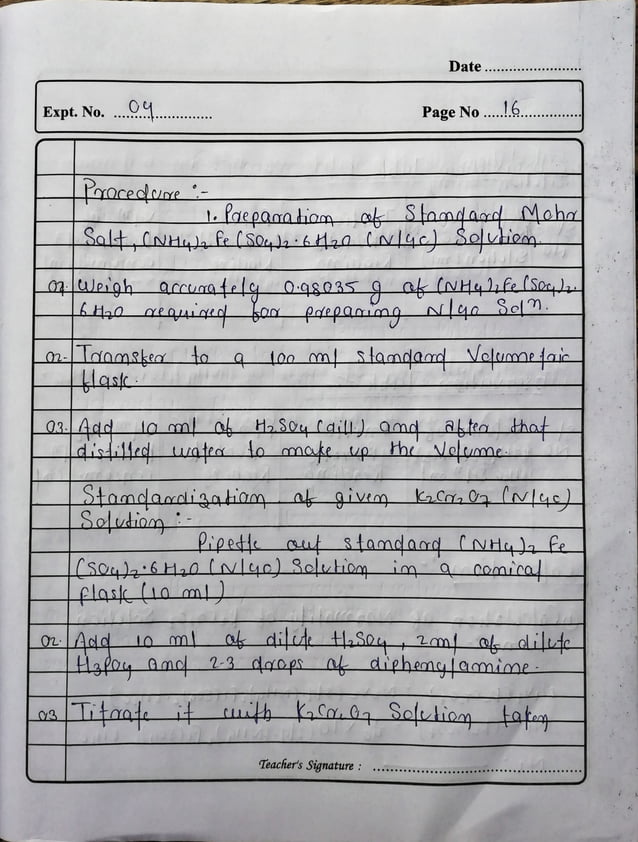 Date ........................
Expt. No. ....04............... Page No .....16...............
Procedure :-
1. Preparation of Standard Mohr
Salt, (NH4)2 Fe(SO4)2·6H2O (N/40) Solution.
01. Weigh accurately 0.98035 g of (NH4)2Fe(SO4)2.
6H2O required for preparing N/40 Solⁿ.
02. Transfer to a 100 ml standard Volumetric
flask.
03. Add 10 ml of H2SO4 (dill) and after that
distilled water to make up the Volume.
Standardization of given K2Cr2O7 (N/40)
Solution :-
Pipette out standard (NH4)2 Fe
(SO4)2·6H2O (N/40) Solution in a conical
flask (10 ml)
02. Add 10 ml of dilute H2SO4, 2ml of dilute
H3PO4 and 2-3 drops of diphenylamine.
03 Titrate it with K2Cr2O7 Solution taken
Teacher's Signature : ..................................................